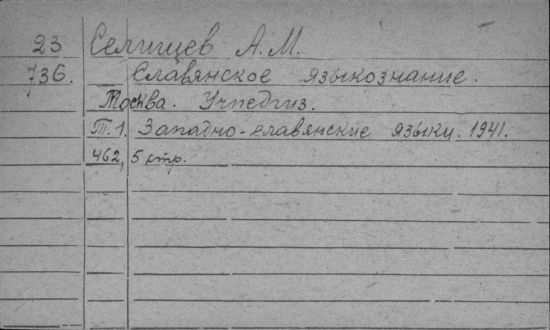 23 Селищев А. М.
736. Славянское языкознание.
Москва. Учпедгиз.
Т. 1. Западно-славянские языки. 1941.
462, 5 стр.